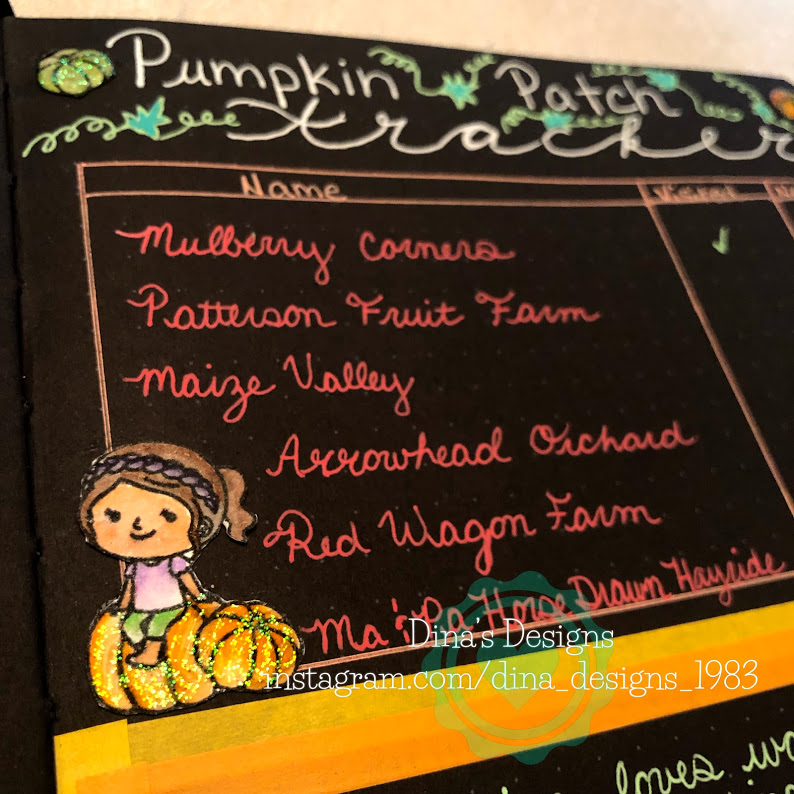 Pumpkin Patch
Tracker
Name Visited
Mulberry Corners
Patterson Fruit Farm
Maize Valley
Arrowhead Orchard
Red Wagon Farm
Ma & Pa Horse Drawn Hayride
Dina's Designs
instagram.com/dina_designs_1983
loves